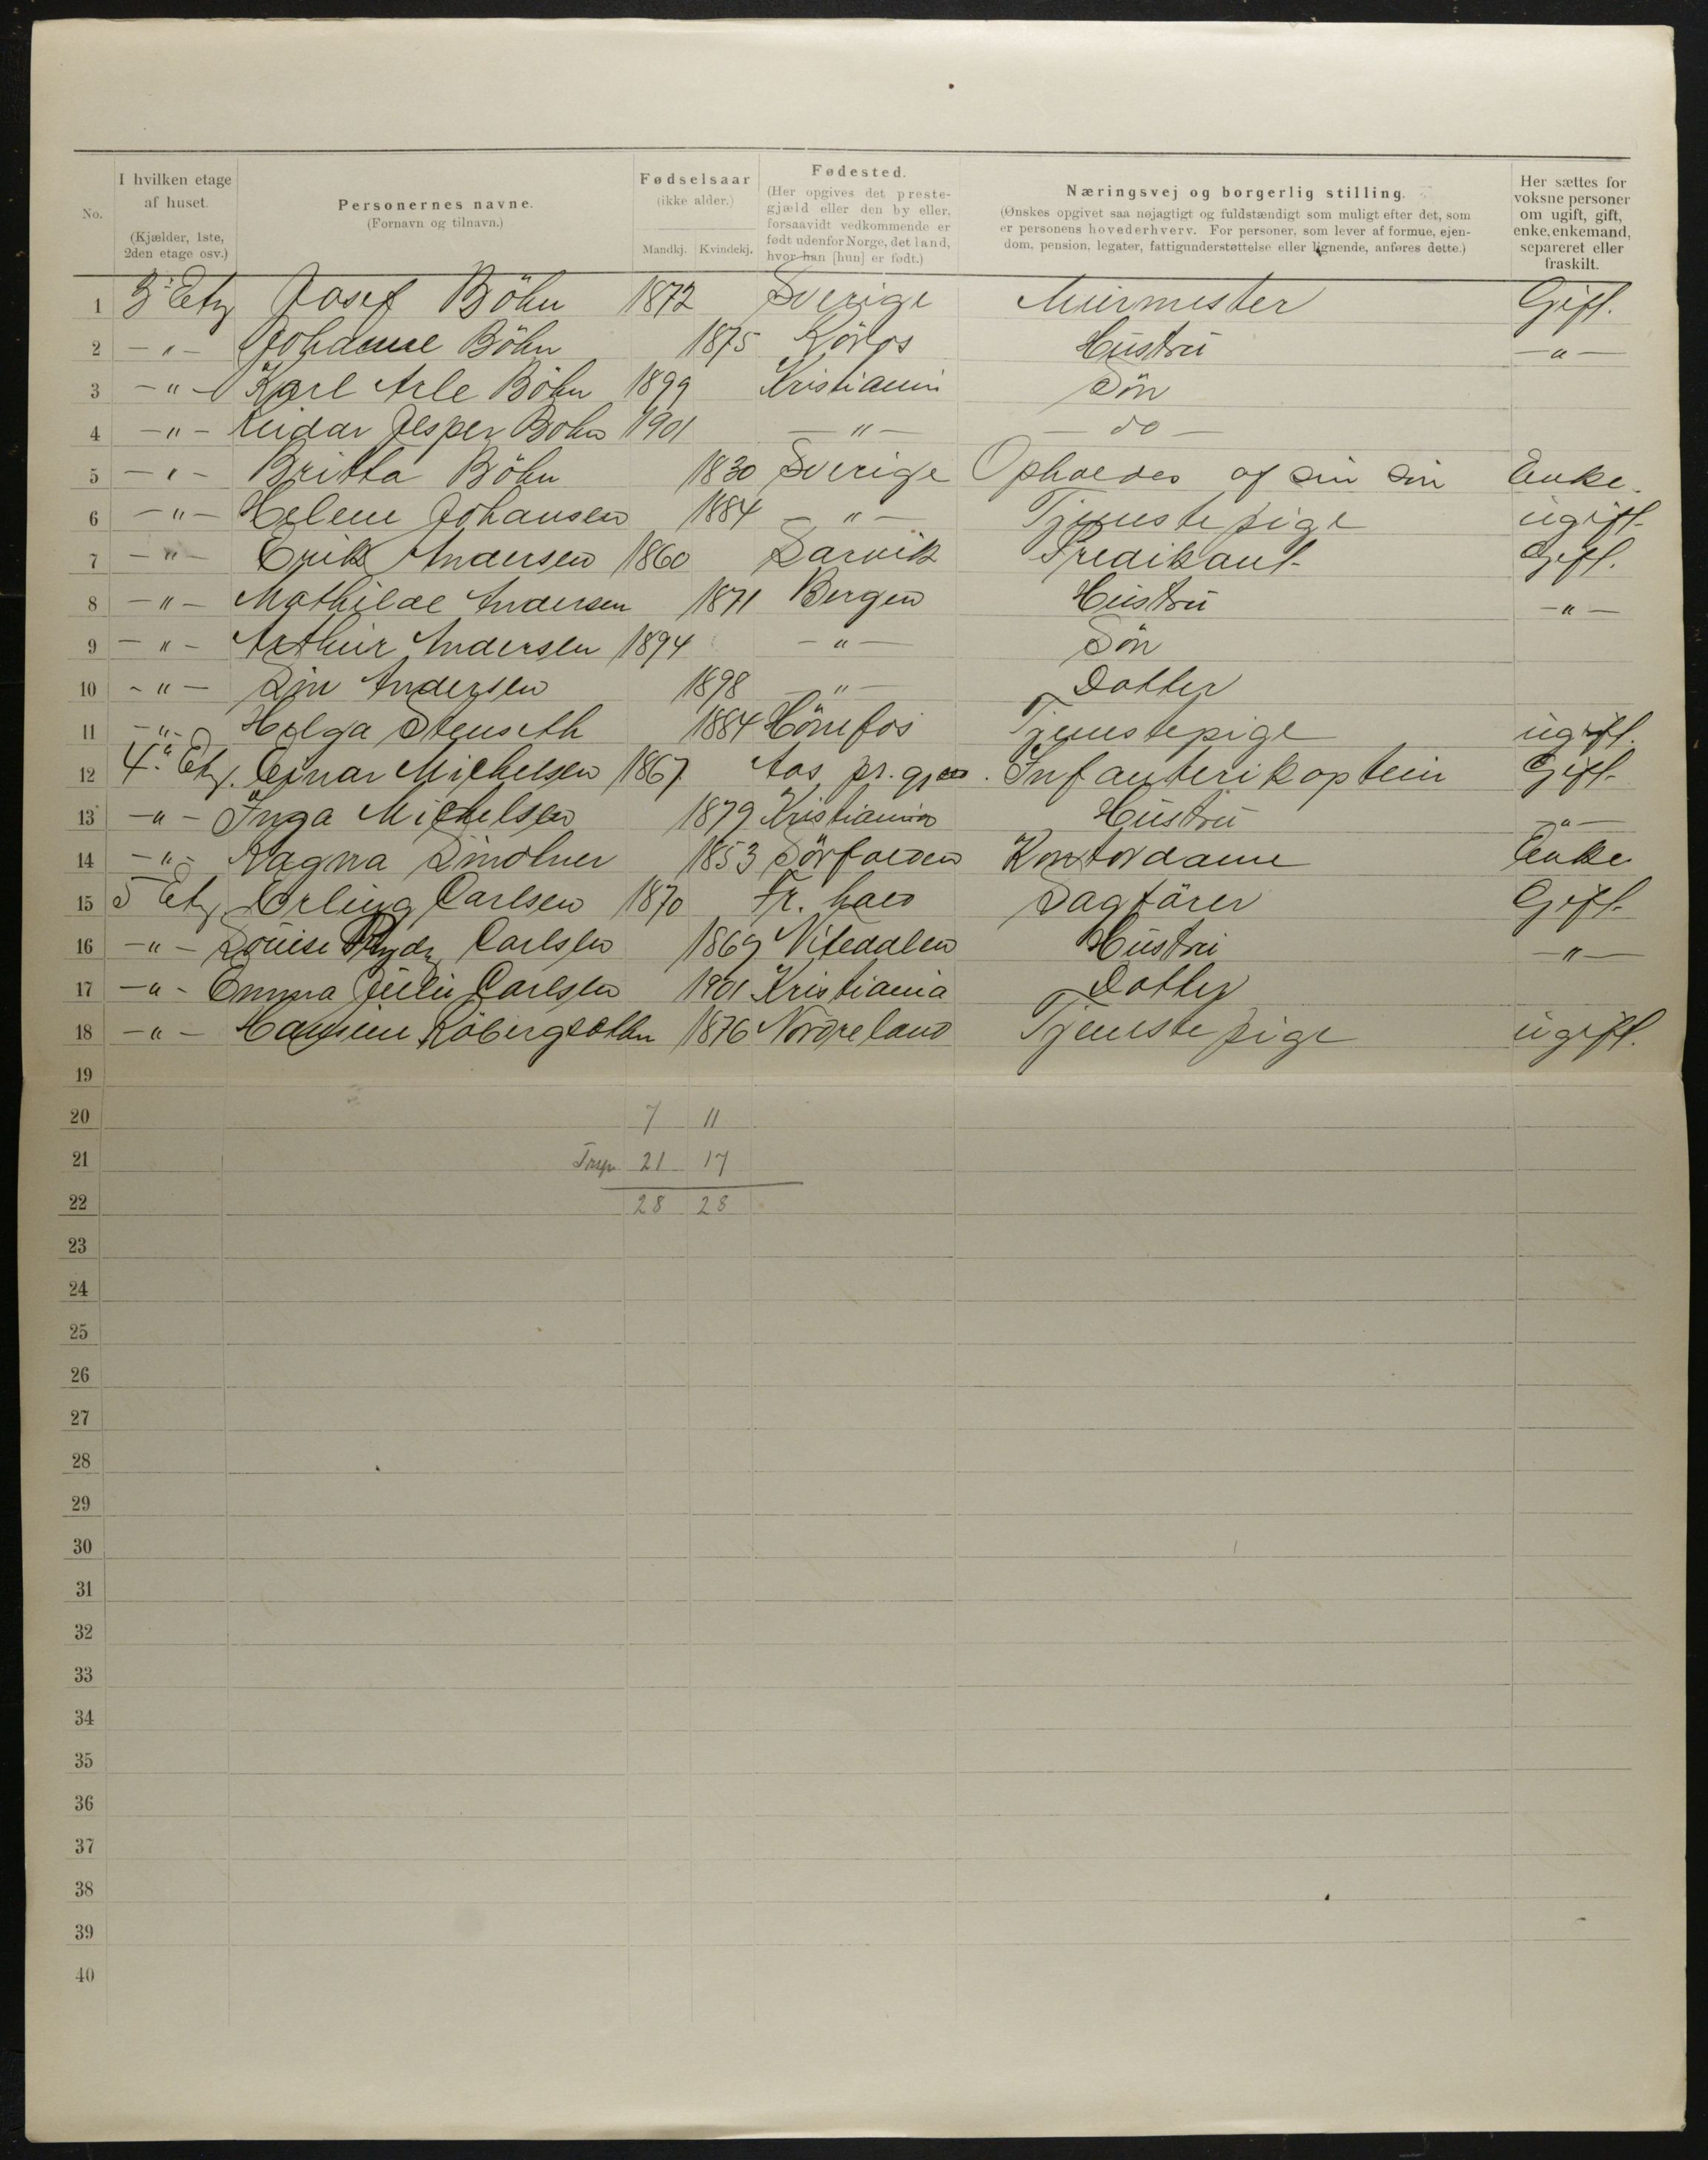 No.
I hvilken etage af huset.
(Kjælder, 1ste, 2den etage osv.)
Personernes navne.
(Fornavn og tilnavn.)
Fødselsaar
(ikke alder.)
Mandkj. Kvindekj.
Fødested.
(Her opgives det prestegjæld eller den by eller, forsaavidt vedkommende er født udenfor Norge, det land, hvor han [hun] er født.)
Næringsvej og borgerlig stilling.
(Ønskes opgivet saa nøjagtigt og fuldstændigt som muligt efter det, som er personens hovederhverv. For personer, som lever af formue, ejendom, pension, legater, fattigunderstøttelse eller lignende, anføres dette.)
Her sættes for voksne personer om ugift, gift, enke, enkemand, separeret eller fraskilt.
1 3. Etg Josef Böhn 1872 Sverige Murmester Gift.
2 — " — Johanne Böhn 1875 Röros Hustru — " —
3 — " — Karl Arle Böhn 1899 Kristiania Sön
4 — " — Reidar Jesper Bohn 1901 — " — — do —
5 — " — Britta Böhn 1830 Sverige Opholdes af sin sön Enke.
6 — " — Helene Johansen 1884 — " — Tjenstepige ugift.
7 — " — Erik Andersen 1860 Larvik Predikant Gift.
8 — " — Mathilde Andersen 1871 Bergen Hustru — " —
9 — " — Arthur Andersen 1894 — " — Sön
10 — " — Andersen 1898 — " — Datter
11 — " — Helga Stenseth 1884 Hönefos Tjenstepige ugift.
12 4. Etg. Einar Michelsen 1867 Aas pr. gj. Infanterikaptein Gift.
13 — " — Inga Michelsen 1879 Kristiania Hustru — " —
14 — " — Ragna Lindtner 1853 Sörfolden Kontordame Enke
15 5 Etg Erling Carlsen 1870 Fr. hald Sagförer Gift.
16 — " — Louise Carlsen 1869 Nitedalen Hustru — " —
17 — " — Emma Julie Carlsen 1901 Kristiania Datter
18 — " — Hansine 1876 Nordreland Tjenstepige ugift.
19
20 7 11
21 Trspr 21 17
22 28 28
23
24
25
26
27
28
29
30
31
32
33
34
35
36
37
38
39
40